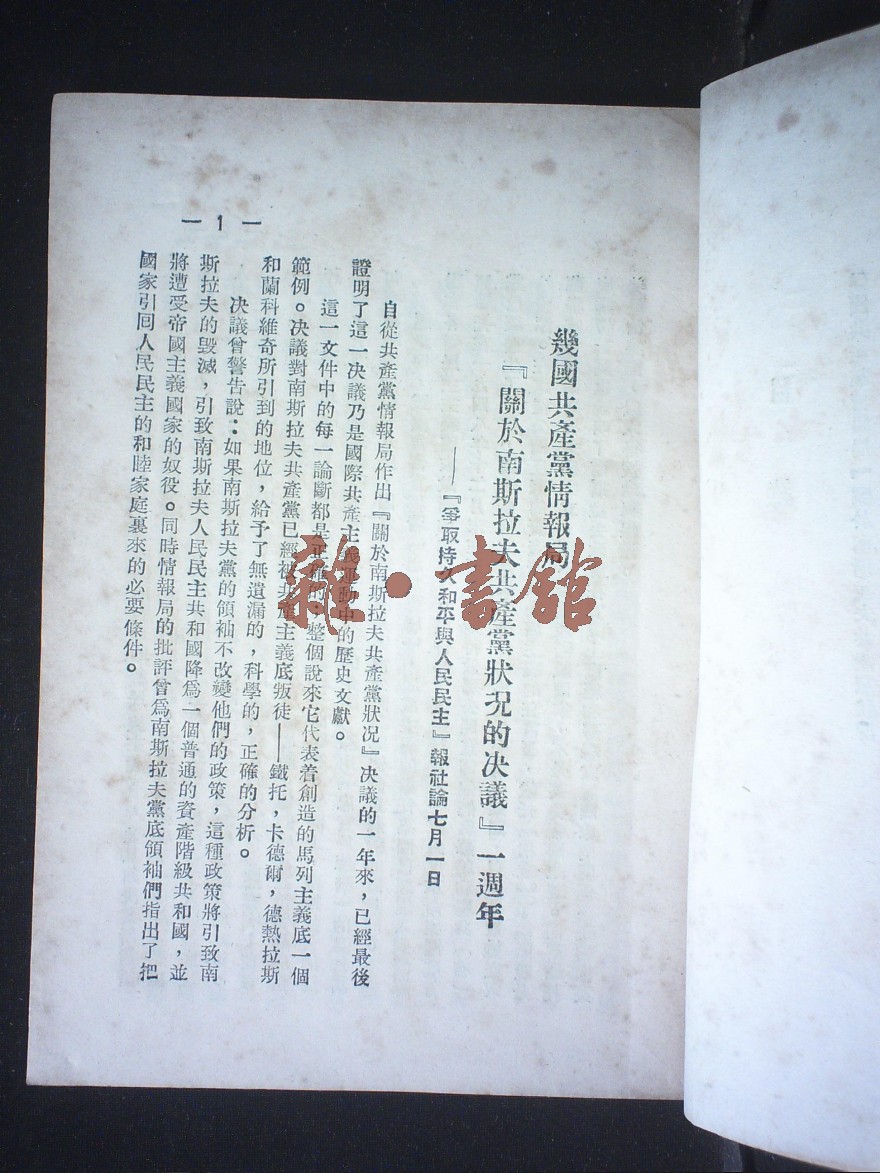 幾國共產黨情報局
『關於南斯拉夫共產黨狀況的决議』一週年
——『爭取持久和平與人民民主』報社論七月一日
自從共產黨情報局作出『關於南斯拉夫共產黨狀況』决議的一年來，已經最後
證明了這一决議乃是國際共產主義運動中的歷史文獻。
這一文件中的每一論斷都是正確的；整個說來它代表着創造的馬列主義底一個
範例。决議對南斯拉夫共產黨已經被共產主義底叛徒——鐵托，卡德爾，德熱拉斯
和蘭科維奇所引到的地位，給予了無遺漏的，科學的，正確的分析。
决議曾警告說：如果南斯拉夫黨的領袖不改變他們的政策，這種政策將引致南
斯拉夫的毀滅，引致南斯拉夫人民民主共和國降爲一個普通的資產階級共和國，並
將遭受帝國主義國家的奴役。同時情報局的批評曾爲南斯拉夫黨底領袖們指出了把
國家引回人民民主的和睦家庭裏來的必要條件。
— 1 —
雜·書館